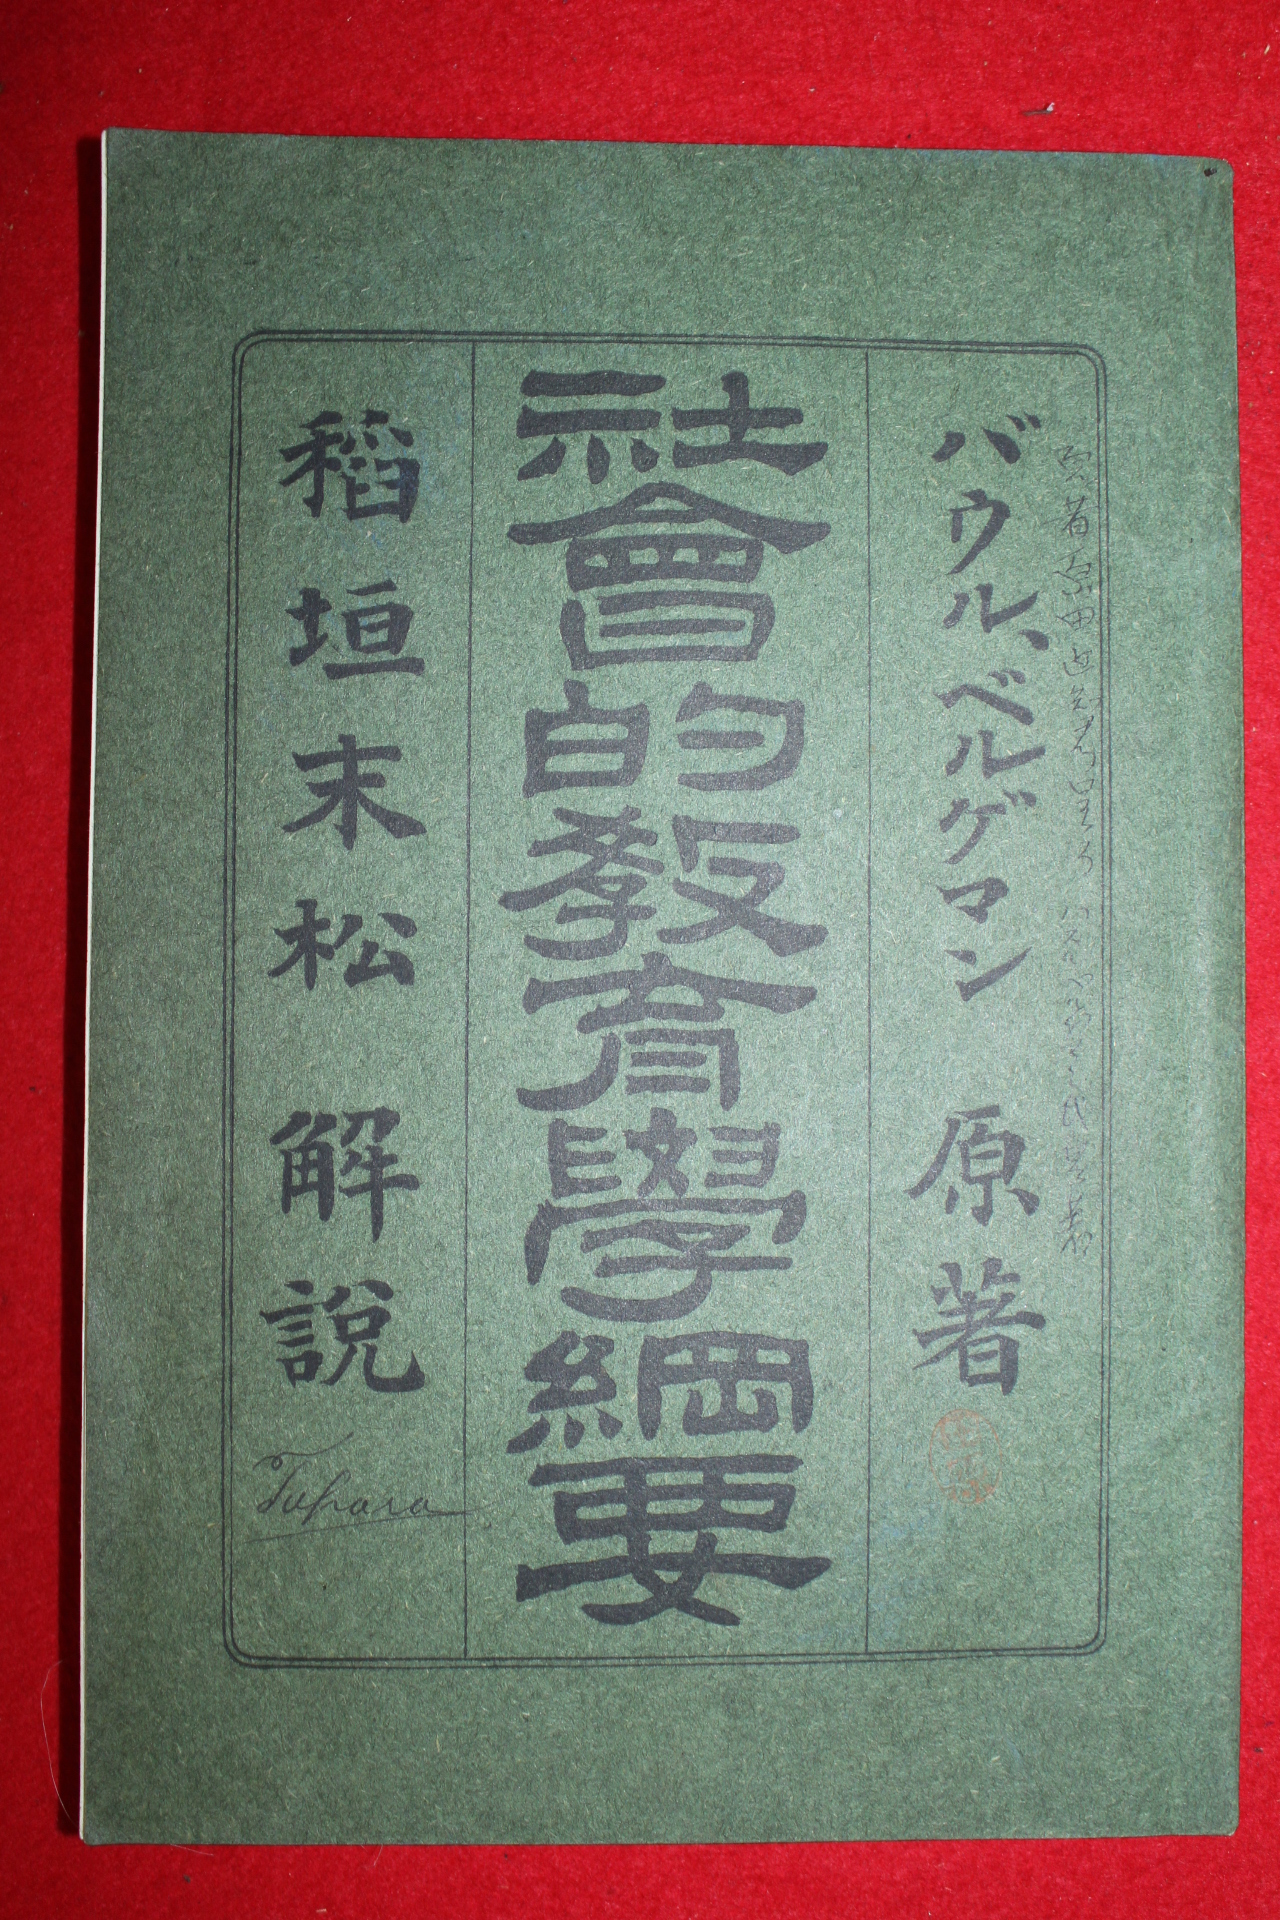 バウル、ベルゲマン 原著
社會的教育學綱要
稻垣末松 解説